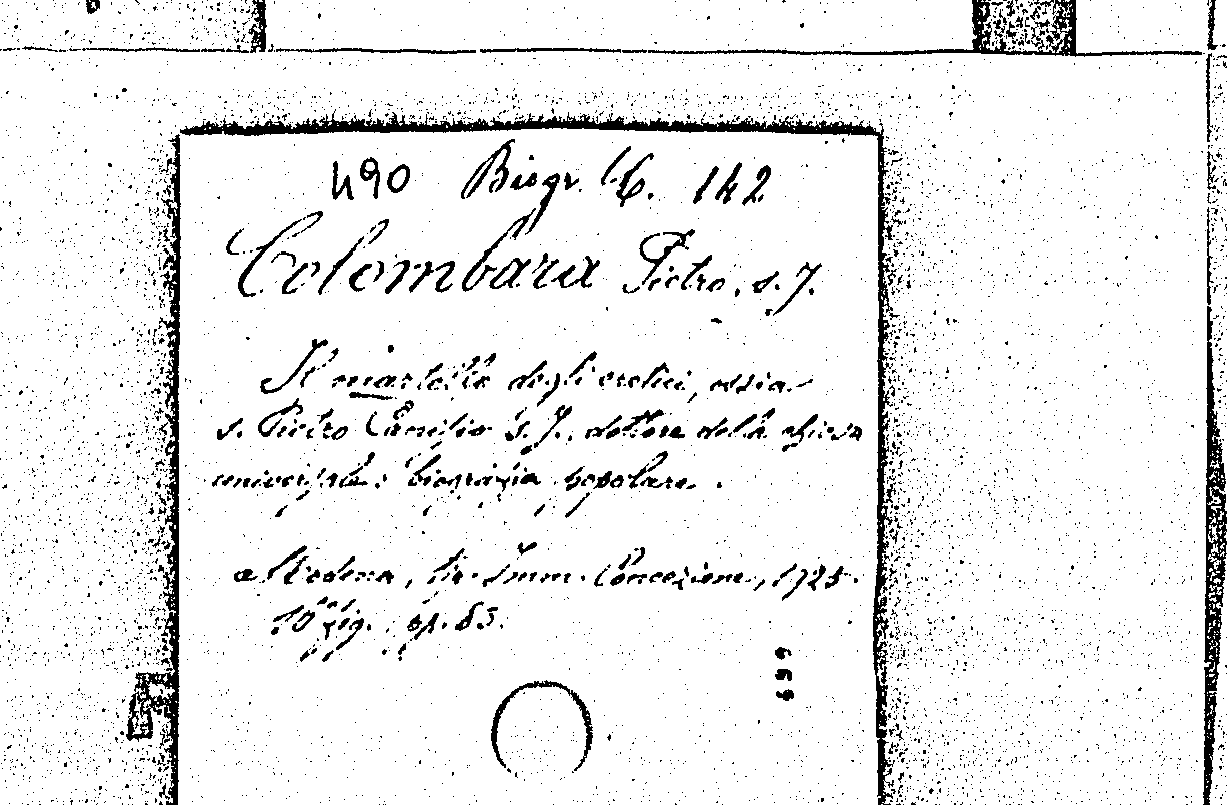 490 Biogr. C. 142
Colombara Pietro, s. J.
Il martello degli eretici, ossia
s. Pietro Canisio S. J., dottore della chiesa
universale: biografia popolare.
Modena, tip. Imm. Concezione, 1925.
16° fig. pp. 85.
699